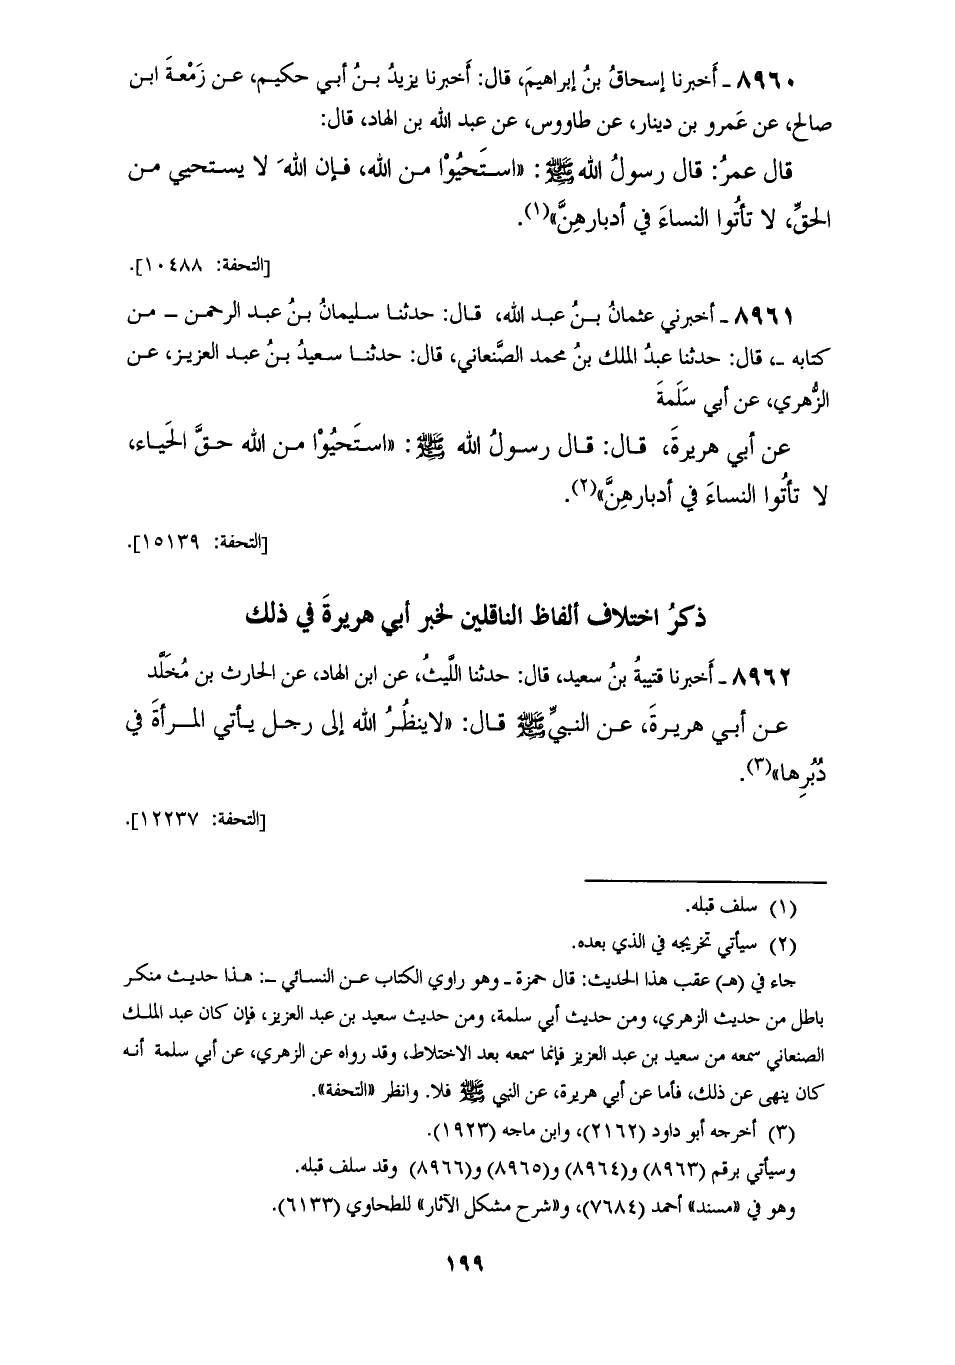 ٨٩٦٠ ـ أَخبرنا إسحاقُ بنُ إبراهيمَ، قال: أَخبرنا يزيدُ بـنُ أبي حكيـم، عـن زَمْعـةَ ابـن
صالح، عن عَمرو بن دينار، عن طاووس، عن عبد الله بن الهاد، قال:
قال عمرُ: قال رسولُ الله ﷺ: «اسـتَحيُوْا مـن الله، فـإن اللهَ لا يسـتحيي مـن
الحقِّ، لا تأتُوا النساءَ في أدبارهِنَّ»(١).
[التحفة: ١٠٤٨٨].
٨٩٦١ ـ أخبرني عثمانُ بـنُ عبـد الله، قـال: حدثنـا سـليمانُ بـنُ عبـد الرحمـن ـ مـن
كتابه ـ، قال: حدثنا عبدُ الملك بنُ محمد الصَّنعاني، قال: حدثنـا سـعيدُ بـنُ عبـد العزيـز، عـن
الزُّهري، عن أبي سَلَمةَ
عن أبي هريرةَ، قـال: قـال رسـولُ الله ﷺ: «اسـتَحيُوْا مـن الله حـقَّ الحَياء،
لا تأتُوا النساءَ في أدبارهِنَّ»(٢).
[التحفة: ١٥١٣٩].
ذكرُ اختلاف ألفاظ الناقلين لخبر أبي هريرةَ في ذلك
٨٩٦٢ ـ أَخبرنا قتيبةُ بنُ سعيد، قال: حدثنا اللَّيثُ، عن ابن الهاد، عن الحارث بن مُخَلَّد
عـن أبـي هريـرةَ، عـن النـبيِّ ﷺ قـال: «لاينظُـرُ الله إلى رجـل يـأتي المـرأةَ في
دُبُرِها»(٣).
[التحفة: ١٢٢٣٧].
(١) سلف قبله.
(٢) سيأتي تخريجه في الذي بعده.
جاء في (هـ) عقب هذا الحديث: قال حمزة ـ وهو راوي الكتاب عـن النسـائي ـ: هـذا حديـث منكـر
باطل من حديث الزهري، ومن حديث أبي سلمة، ومن حديث سعيد بن عبد العزيز، فإن كان عبد الملـك
الصنعاني سمعه من سعيد بن عبد العزيز فإنما سمعه بعد الاختلاط، وقد رواه عن الزهري، عن أبي سلمة أنـه
كان ينهى عن ذلك، فأما عن أبي هريرة، عن النبي ﷺ فلا. وانظر «التحفة».
(٣) أخرجه أبو داود (٢١٦٢)، وابن ماجه (١٩٢٣).
وسيأتي برقم (٨٩٦٣) و(٨٩٦٤) و(٨٩٦٥) و(٨٩٦٦) وقد سلف قبله.
وهو في «مسند» أحمد (٧٦٨٤)، و«شرح مشكل الآثار» للطحاوي (٦١٣٣).
١٩٩